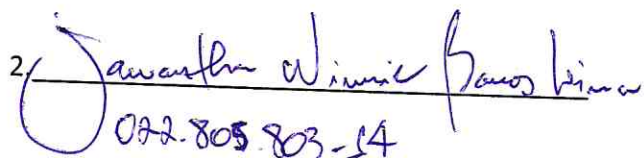 2. Samantha Barros Lima
022.805.803-54